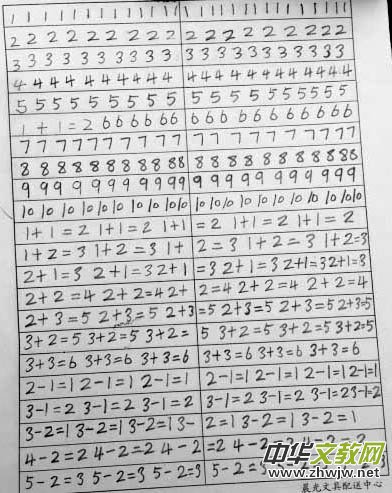 1 1 1 1 1 1 1 1 1 1 1 1 1 1 1 1 1 1 1 1
2 2 2 2 2 2 2 2 2 2 2 2 2 2 2 2 2 2 2 2
3 3 3 3 3 3 3 3 3 3 3 3 3 3 3 3 3 3 3 3
4 4 4 4 4 4 4 4 4 4 4 4 4 4 4 4 4 4 4 4
5 5 5 5 5 5 5 5 5 5 5 5 5 5 5 5 5 5 5
1+1=2 6 6 6 6 6 6 6 6 6 6 6 6 6 6 6 6
7 7 7 7 7 7 7 7 7 7 7 7 7 7 7 7 7 7 7 7
8 8 8 8 8 8 8 8 8 8 8 8 8 8 8 8 8 8 8 8 8 8
9 9 9 9 9 9 9 9 9 9 9 9 9 9 9 9 9 9 9 9
10 10 10 10 10 10 10 10 10 10 10 10 10 10 10 10 10 10
1+1=2 1+1=2 1+1=2 1+1=2 1+1=2
1+2=3 1+2=3 1+2=3 1+2=3 1+2=3
2+1=3 2+1=3 2+1=3 2+1=3 2+1=3 2+1=3
2+2=4 2+2=4 2+2=4 2+2=4 2+2=4
2+3=5 2+3=5 2+3=5 2+3=5 2+3=5 2+3=5
3+2=5 3+2=5 3+2=5 3+2=5 3+2=5 3+2=5
3+3=6 3+3=6 3+3=6 3+3=6 3+3=6 3+3=6
2-1=1 2-1=1 2-1=1 2-1=1 2-1=1 2-1=1 2-1=1
3-1=2 3-1=2 3-1=2 3-1=2 3-1=2 3-1=2 3-1=2
3-2=1 3-2=1 3-2=1 3-2=1 3-2=1 3-2=1
4-2=2 4-2=2 4-2=2 4-2
5-2=3 5-2=3 5-2=3 5-2=3
中华文教网
www.zhwjw.net
晨光文具配送中心